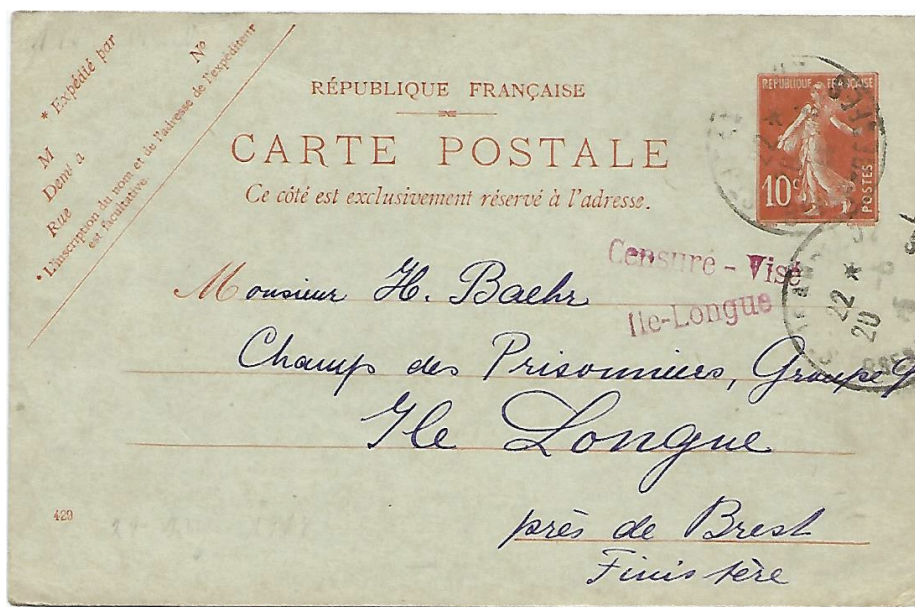 * Expédié par
M Nº
Demt à
Rue
* L'inscription du nom et de l'adresse de l'expéditeur
est facultative.
RÉPUBLIQUE FRANÇAISE
CARTE POSTALE
Ce côté est exclusivement réservé à l'adresse.
REPUBLIQUE FRANÇAISE
10c
POSTES
22 *
22 *
20
Censuré - Visé
Ile-Longue
Monsieur H. Baehr
Champ des Prisonniers, Groupe 9
Ile Longue
près de Brest
Finistère
429